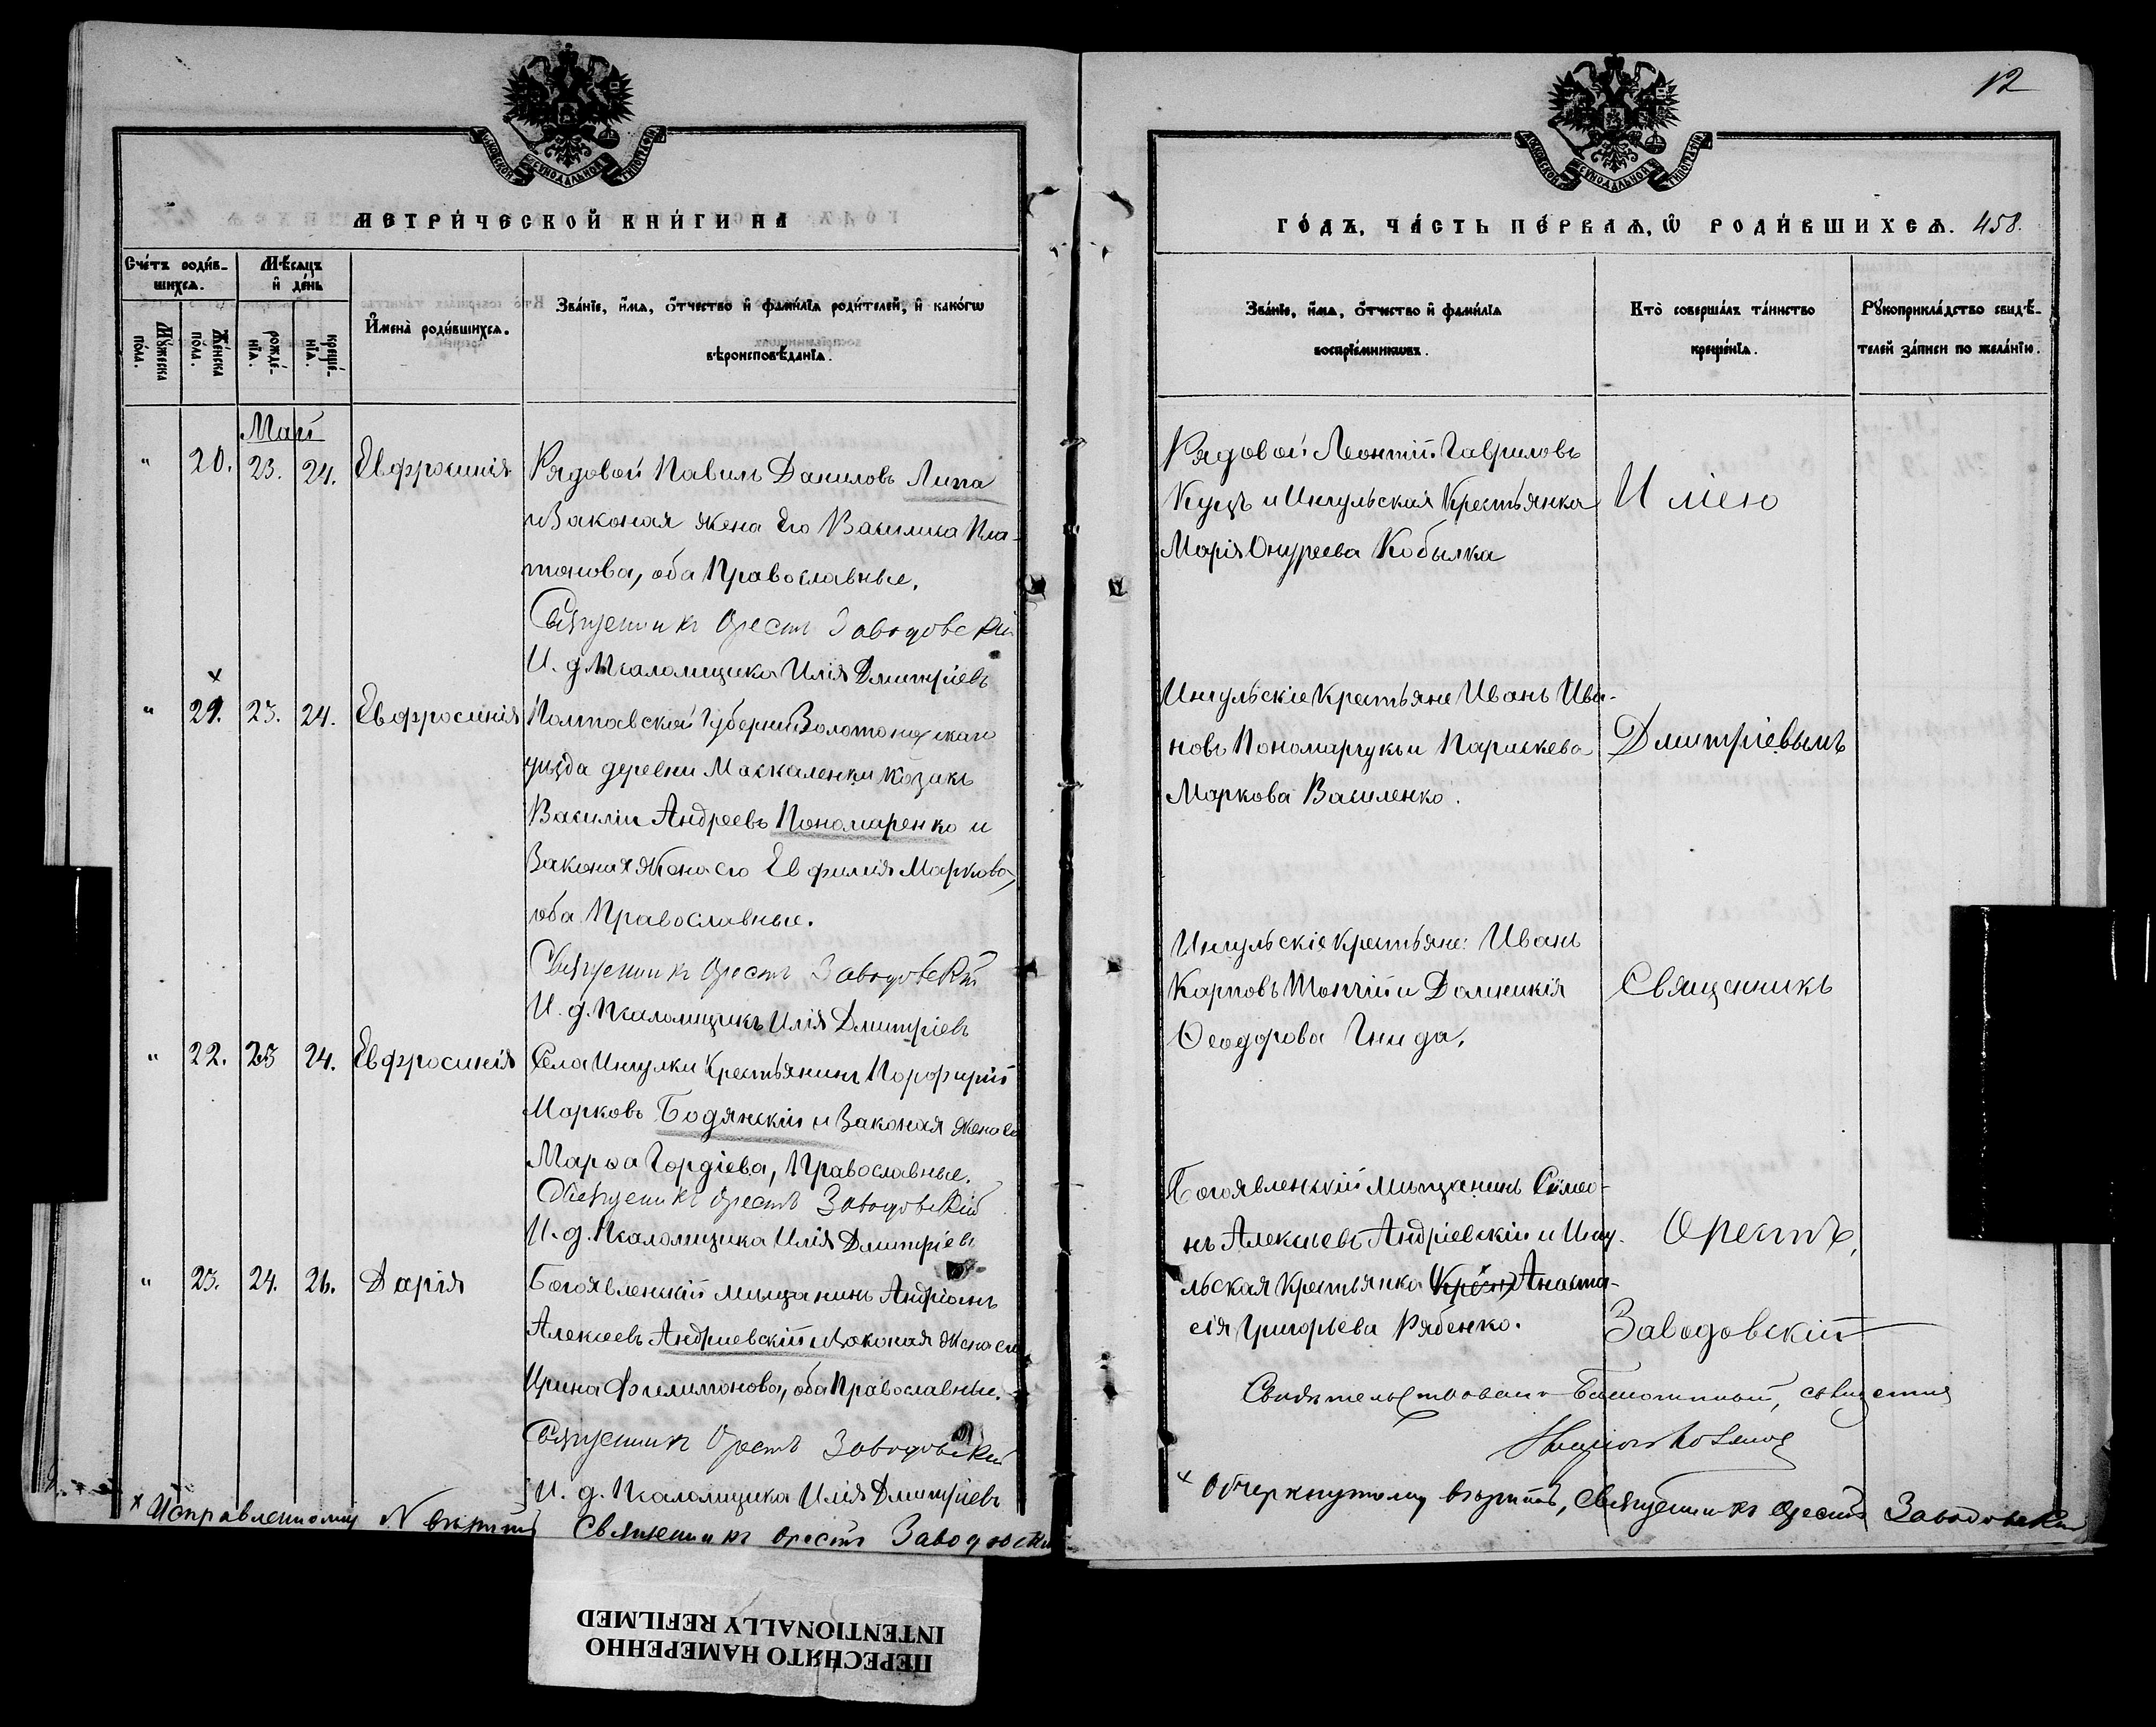 МОСКОВСКОЙ СѴНОДАЛЬНОЙ ТИПОГРАФІИ
МЕТРИ́ЧЕСКОЙ КНИ́ГИ НА
Сче́тъ роди́в-
шихся.
Мѣ́сяцъ
и҆ де́нь
Мꙋ́жеска
по́ла.
Же́нска
по́ла.
рожде́-
нїѧ.
креще́-
нїѧ.
И҆мена̀ роди́вшихсѧ.
Зва́нїе, и҆́мѧ, ѻ҆́тчество и҆ фами́лїѧ роди́телей, и҆ како́гѡ
вѣроисповѣ́данїѧ.
Май
" 20. 23. 24. Евфросинія
Рядовой Павилъ Даниловъ Липа
и Законая жена его Василиса Пла-
тонова, оба Православные.
Священникъ Орестъ Заводовскій
И. д. Псаломщика Илія Дмитріевъ
х
" 21. 23. 24. Евфросинія
Полтавской Губерніи Золотоношскаго
уѣзда деревни Маскаленки козакъ
Василіи Андреевъ Пономаренко и
Законая жена его Евфимія Маркова,
оба Православные.
Священникъ Орестъ Заводовскій
И. д. Псаломщикъ Илія Дмитріевъ
" 22. 23 24. Евфросинія
Села Ингулки Крестьянинъ Порфирій
Марковъ Бодянскій и Законая жена его
Марѳа Гордіева, Православные.
Священникъ Орестъ Заводовскій
И. д. Псаломщика Илія Дмитріевъ
" 23. 24. 26. Дарія
Богоявленскій мѣщанинъ Андріанъ
Алексеевъ Андриевскій и Законая жена его
Ирина Филимонова, оба Православные.
Священникъ Орестъ Заводовскій
И. д. Псаломщика Илія Дмитріевъ
х Исправленному N вѣрить Священникъ Орестъ Заводовскій
12
МОСКОВСКОЙ СѴНОДАЛЬНОЙ ТИПОГРАФІИ
ГО́ДЪ, ЧА́СТЬ ПЕ́РВАѦ, Ѡ҆ РОДИ́ВШИХСѦ. 458.
Зва́нїе, и҆́мѧ, ѻ҆́тчество и҆ фами́лїѧ
воспрїе́мникѡвъ.
Кто̀ соверша́лъ та́инство
креще́нїѧ.
Рꙋкоприкла́дство свидѣ́-
телей за́писи по жела́нїю.
Рядовой Леонтій Гавриловъ
Куцъ и Ингульская Крестьянка
Марія Онуреева Кобылка
Илією
Ингульскіе Крестьяне Иванъ Ива-
новъ Пономарчукъ и Параскева
Маркова Василенко.
Дмитріевымъ
Ингульскіе крестьяне: Иванъ
Карповъ Топчій и Домникія
Ѳеодорова Гнида.
Священникъ
Богоявленскій мѣщанинъ Симео-
нъ Алексѣевъ Андріевскій и Ингу-
льская Крестьянка Анаста-
сія Григорьева Рябенко.
Орестъ,
Заводовскій
х Обчеркнутому вѣрить, Священникъ Орестъ Заводовскій
ПЕРЕСНЯТО НАМЕРЕННО
INTENTIONALLY REFILMED